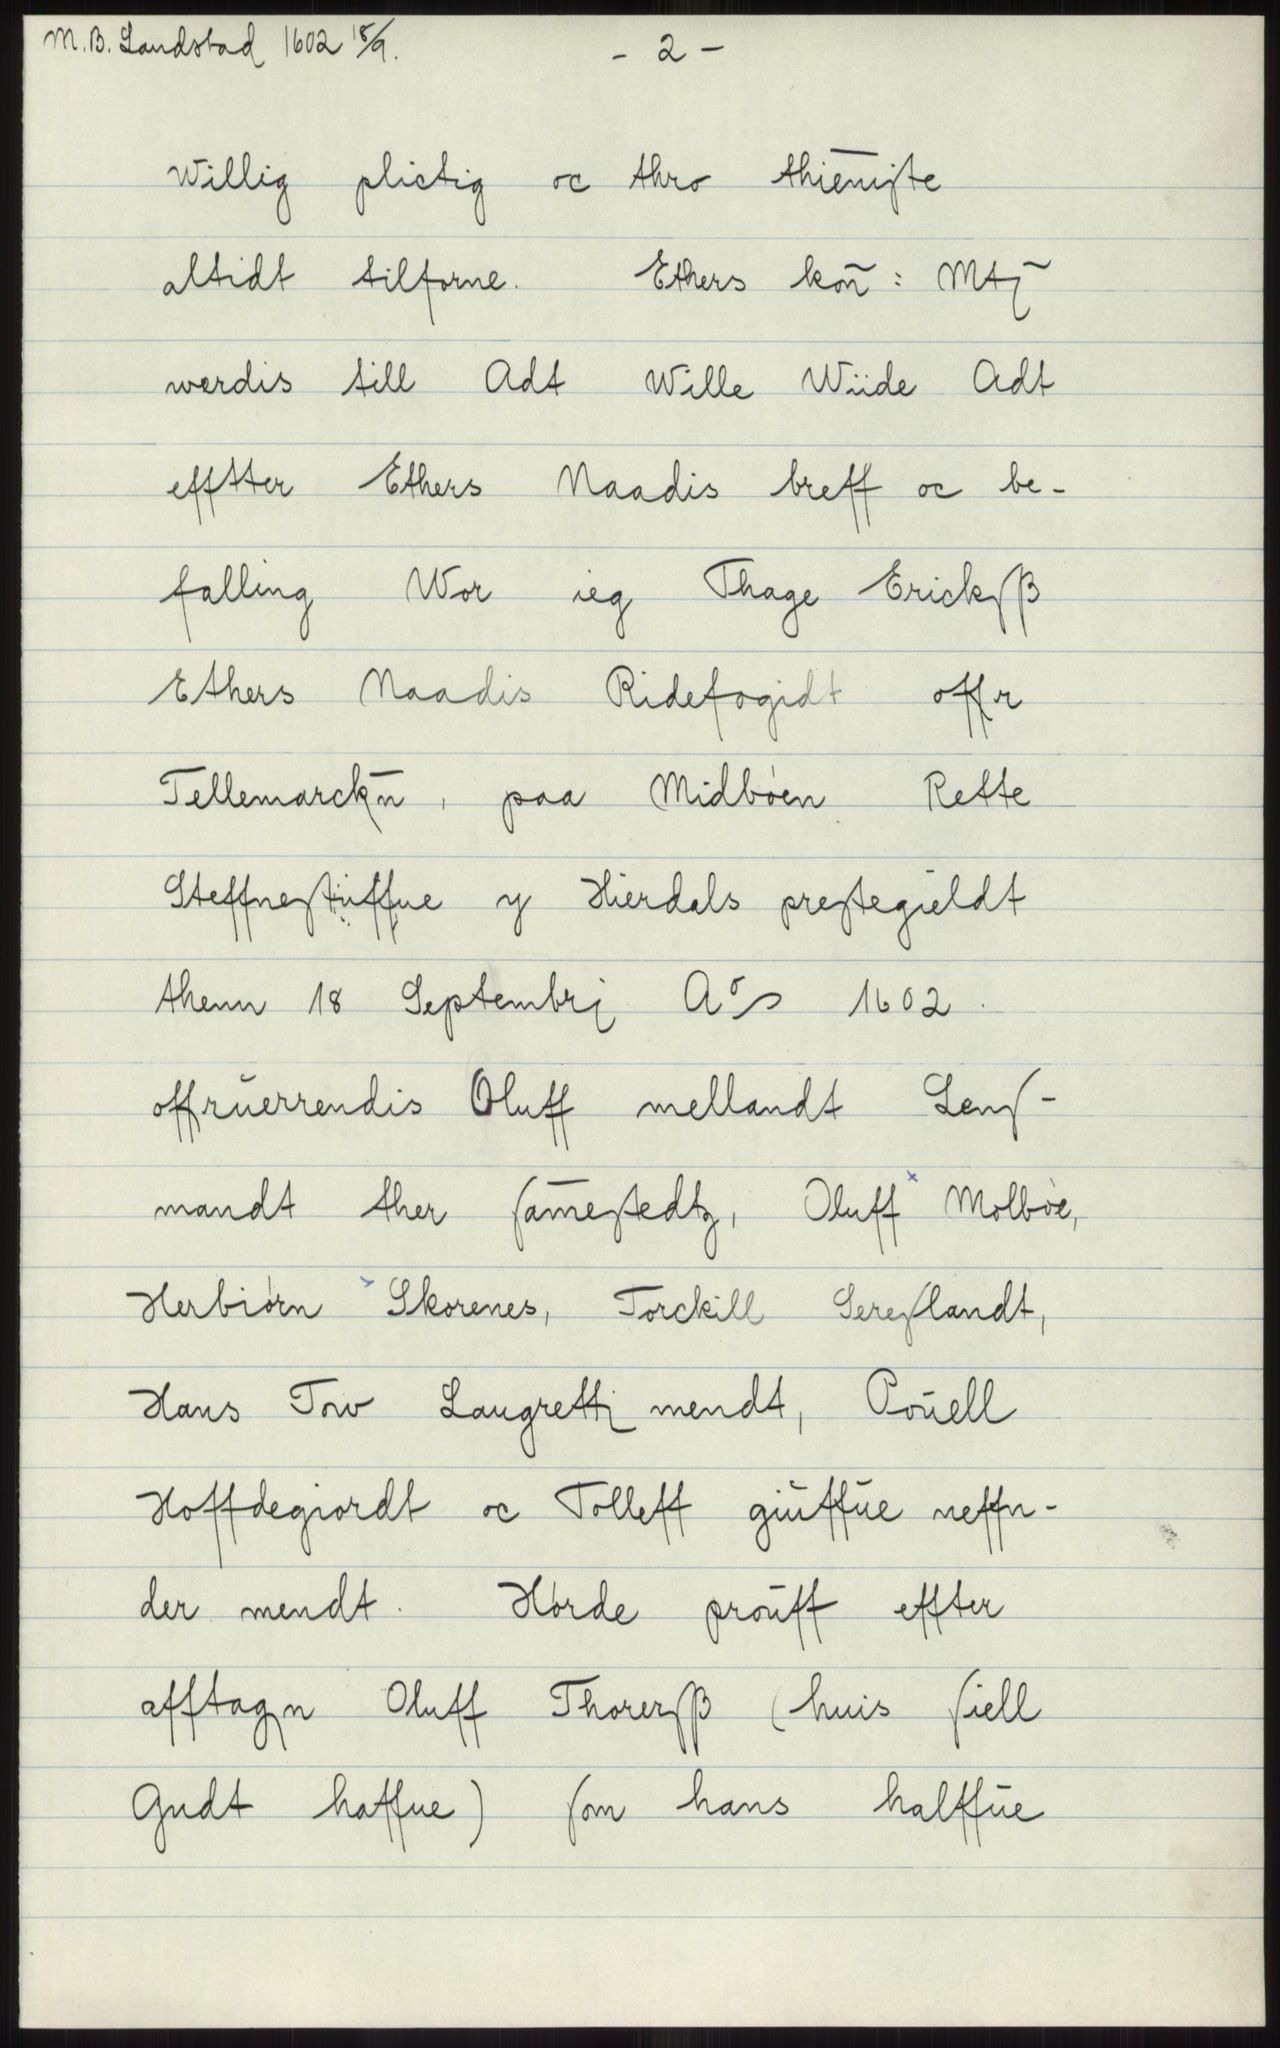 M.B. Landstad 1602 18/9. - 2 -
Willig plictig oc thro thiēniſte
altidt tilforne. Ethers kon̄ : Mtȷ̄
werdis till Adt Wille Wiide Adt
efftter Ethers Naadis breff oc be-
falling Wor ieg Thage Erickſß
Ethers Naadis Ridefogidt offr
Tellemarckn̄, paa Midbøen Rette
Steffneſtuffue y Hierdals preſtegieldt
thenn 18 Septembrj Aos 1602.
offrūerrendis Oluff mellandt Lenſ-
mandt ther ſam̄eſtedtz, Oluff x Molbøe,
Herbiørn x Skorenes, Torckill Sereſlandt,
Hans Tow Laugrettj mendt, Poūell
Hoffdegiordt oc Tolleff giūffūe neffn-
der mendt. Hørde proūff effter
afftagn Oluff Thorerſß (huis ſiell
Gudt haffue) ſom hans halffūe